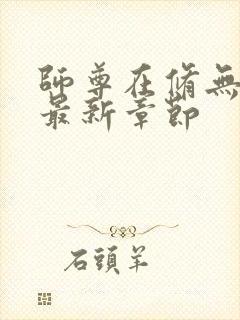 師尊在脩無
最新章節
石頭羊